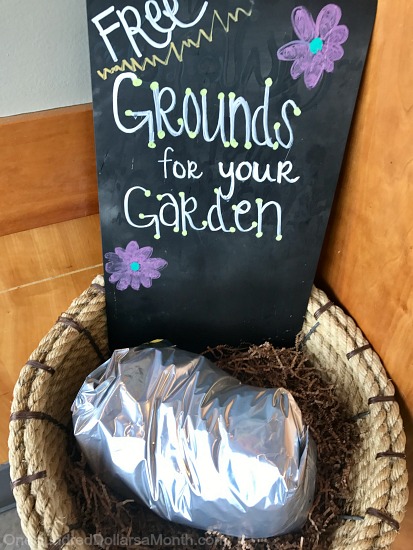 FREE
GROUNDS
FOR YOUR
GARDEN
OneHundredDollarsaMonth.com